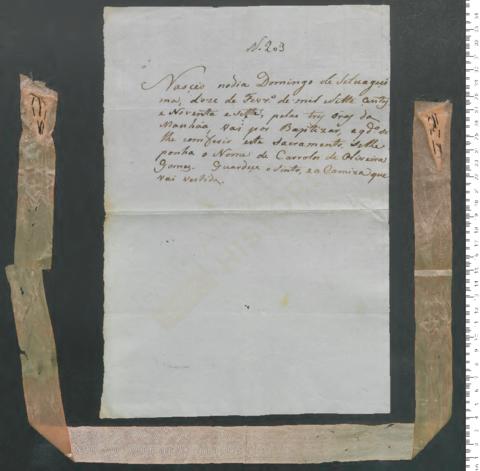 N. 203
Nasçeo nodia Domingo de Setuageci
ma, doze de Fevr.º de mil Sette Centos
e Noventa e Sette, pelas tres oras da
Manhãa vai por Baptizar, e q.do se
lhe comferir este Sacramento, Se lhe
ponha o Nome de Carrolos de Oliveira
Gomes. Guardeçe o Sinto, e a Camiza que
vai vestida